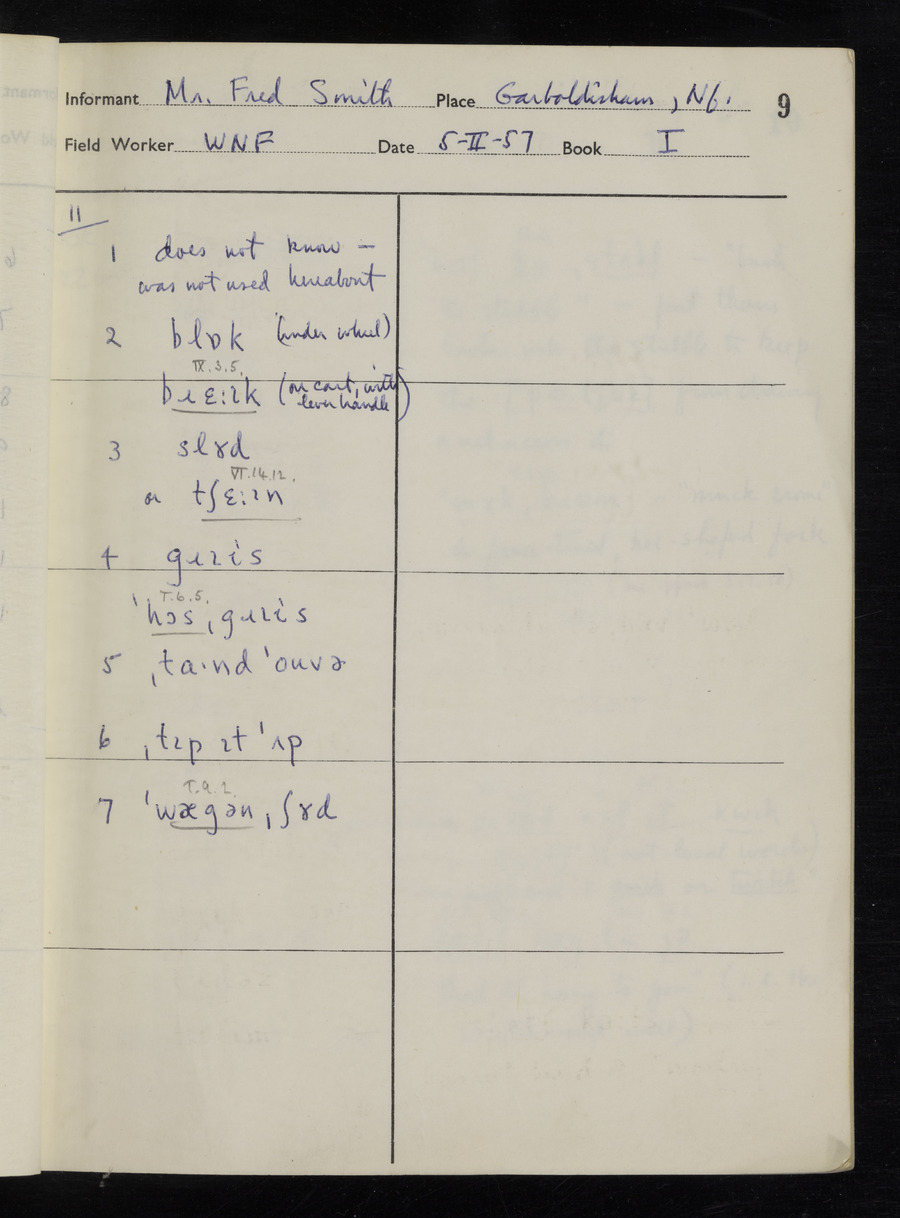 Informant Mr. Fred Smith Place Garboldisham, Nf. 9
Field Worker WNF Date 5-II-57 Book I
11
1 does not know –
was not used hereabout
2 blɒk (under wheel)
IX.3.5.
bɹɛ:ɪk (on cart, with
lever handle)
3 slɤd
VI.14.12.
or tʃɛ:ɪn
4 gɹɪis
I.6.5.
ˈhɔs ˌgɹɪis
5 ˌta·nd ˈouvɚ
6 ˌtɪp ɪt ˈʌp
I.9.2.
7 ˈwægən ˌʃɤd